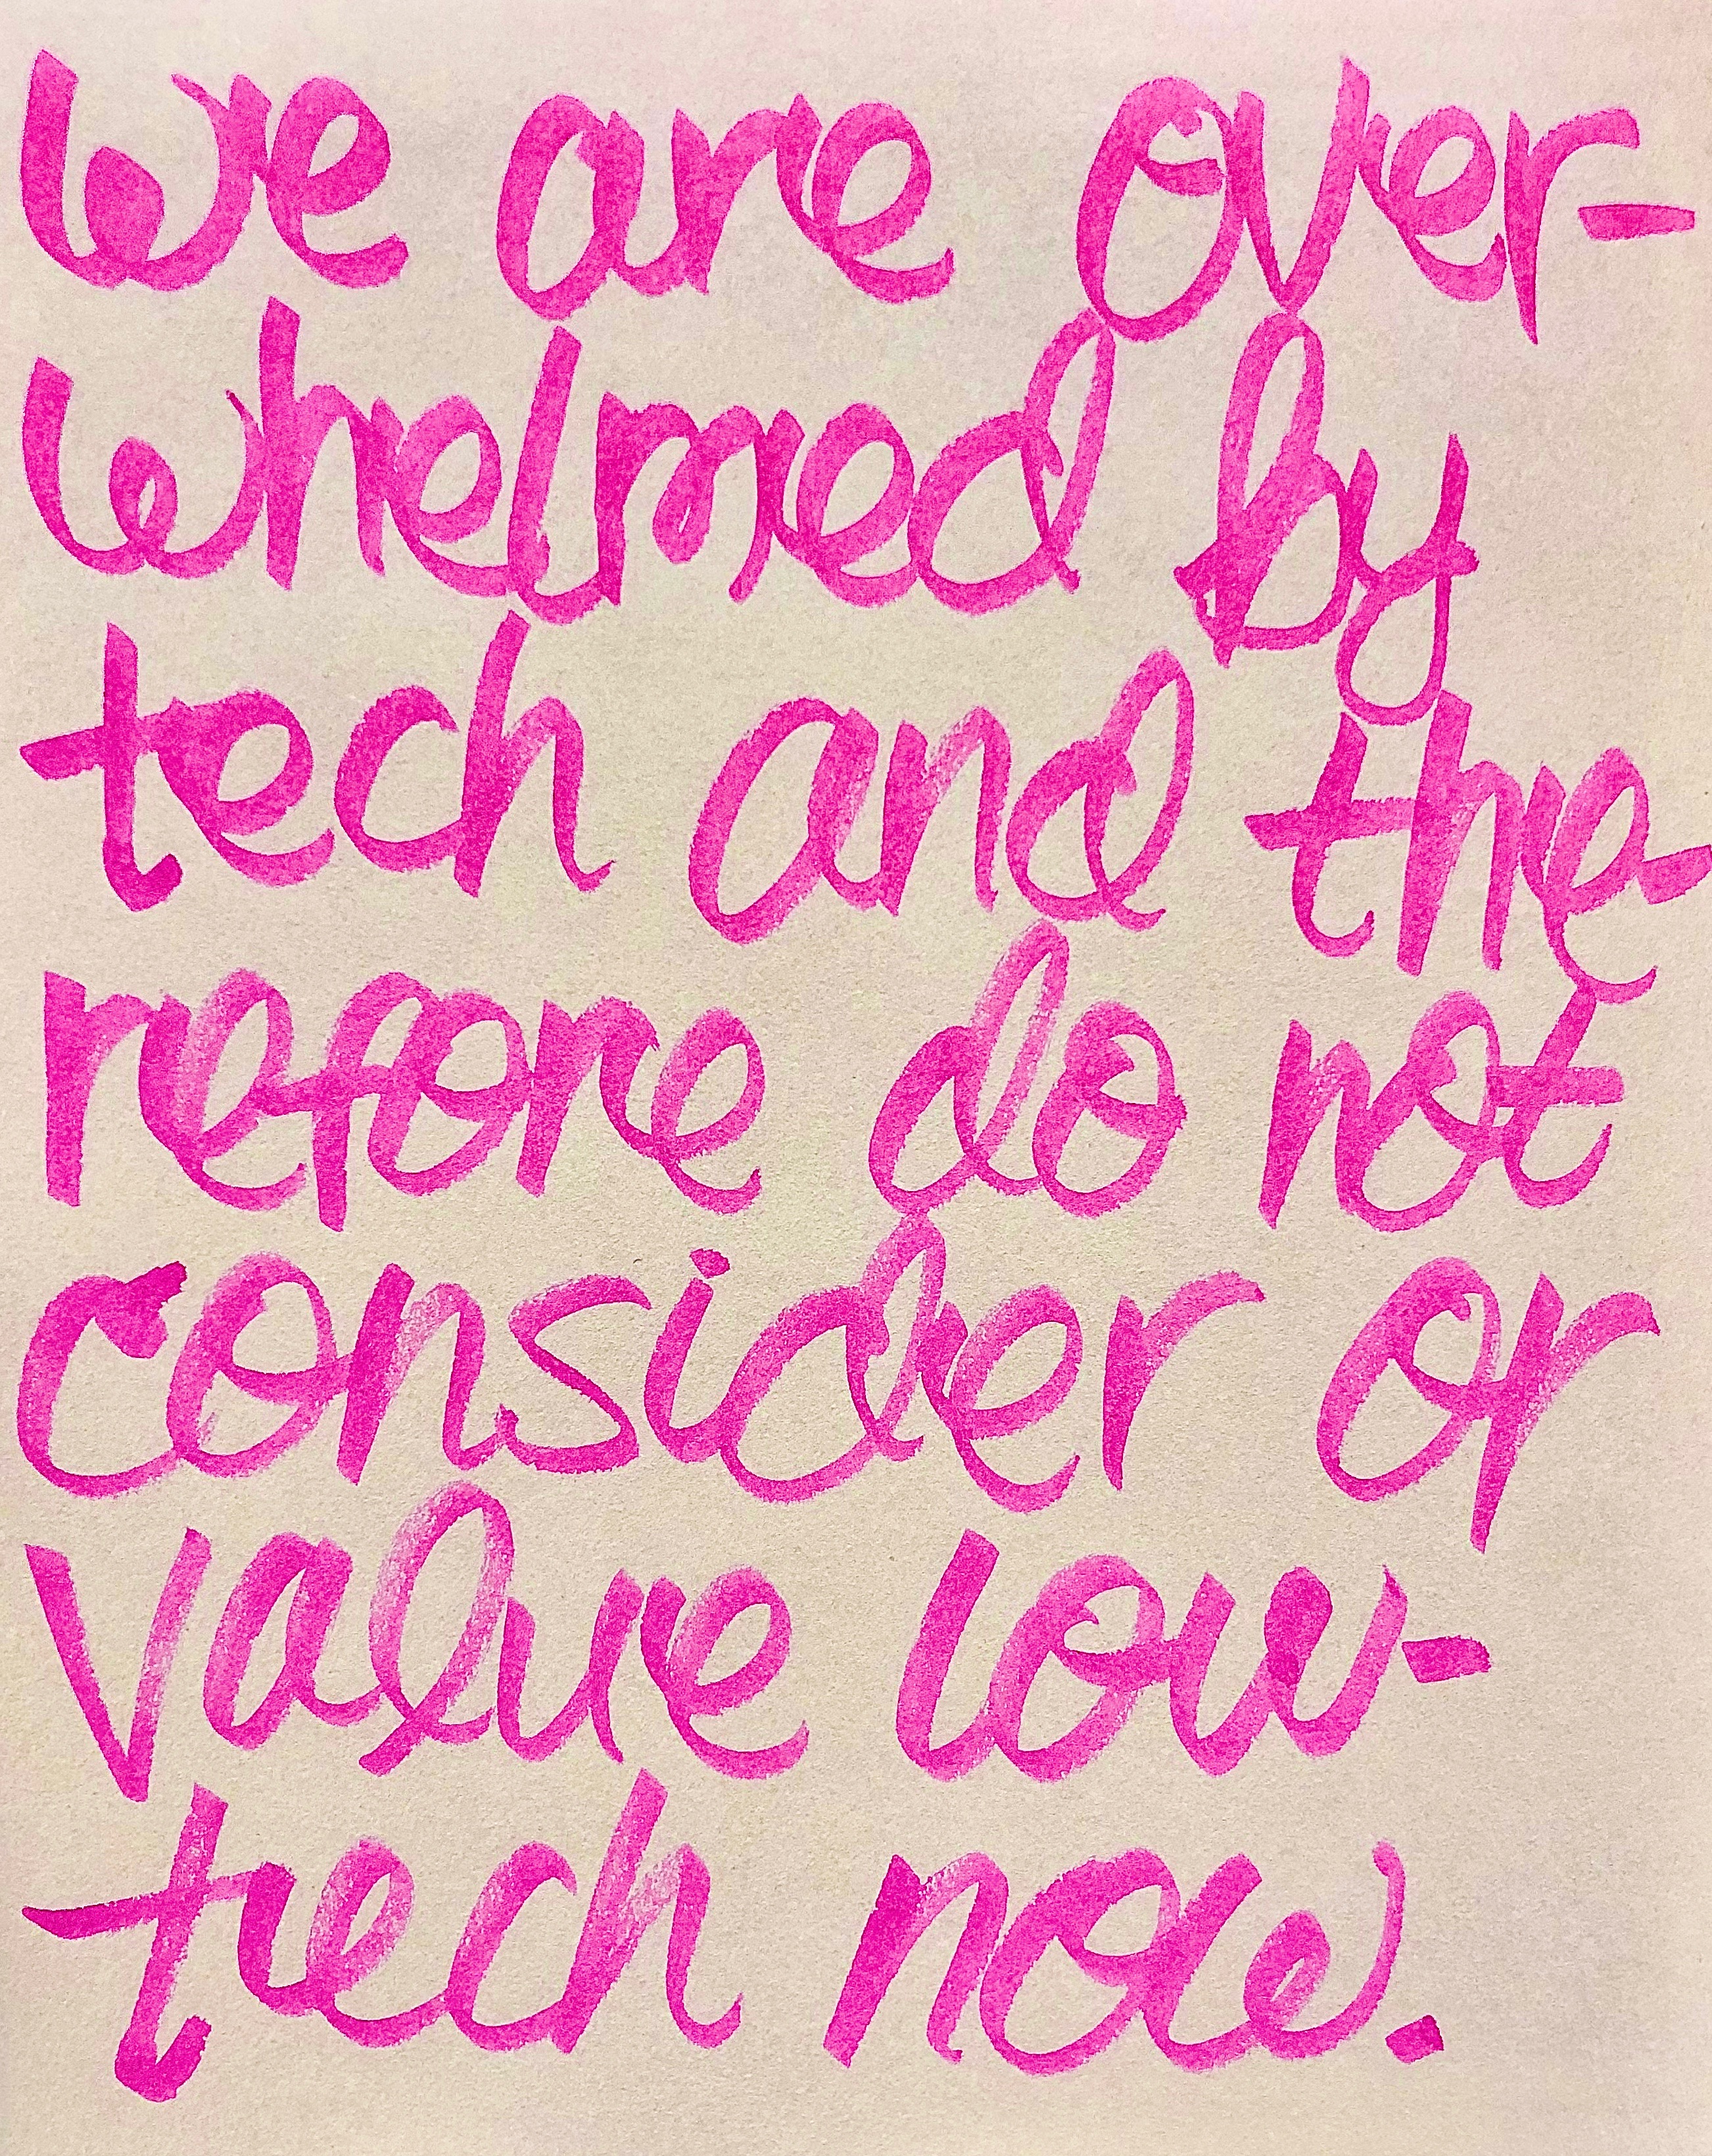 we are over-
whelmed by
tech and the-
refore do not
consider or
value low-
tech now.